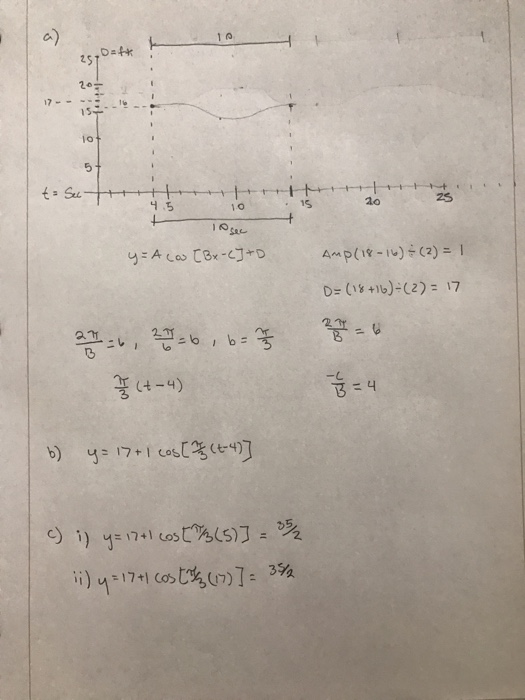 a)
10
D=ft
25
20
17 - - 16
15
10
5
t = Sec
4 5 10 15 20 25
10 sec
y = A cos [Bx-C]+D
Amp (18-16)÷(2) = 1
D= (18+16)÷(2) = 17
2π/B = 6, 2π/6 = b, b = π/3
2π/B = 6
π/3 (t-4)
-C/B = 4
b) y = 17+1 cos[π/3(t-4)]
c) i) y=17+1 cos[π/3(5)] = 35/2
ii) y=17+1 cos[π/3(17)] = 35/2